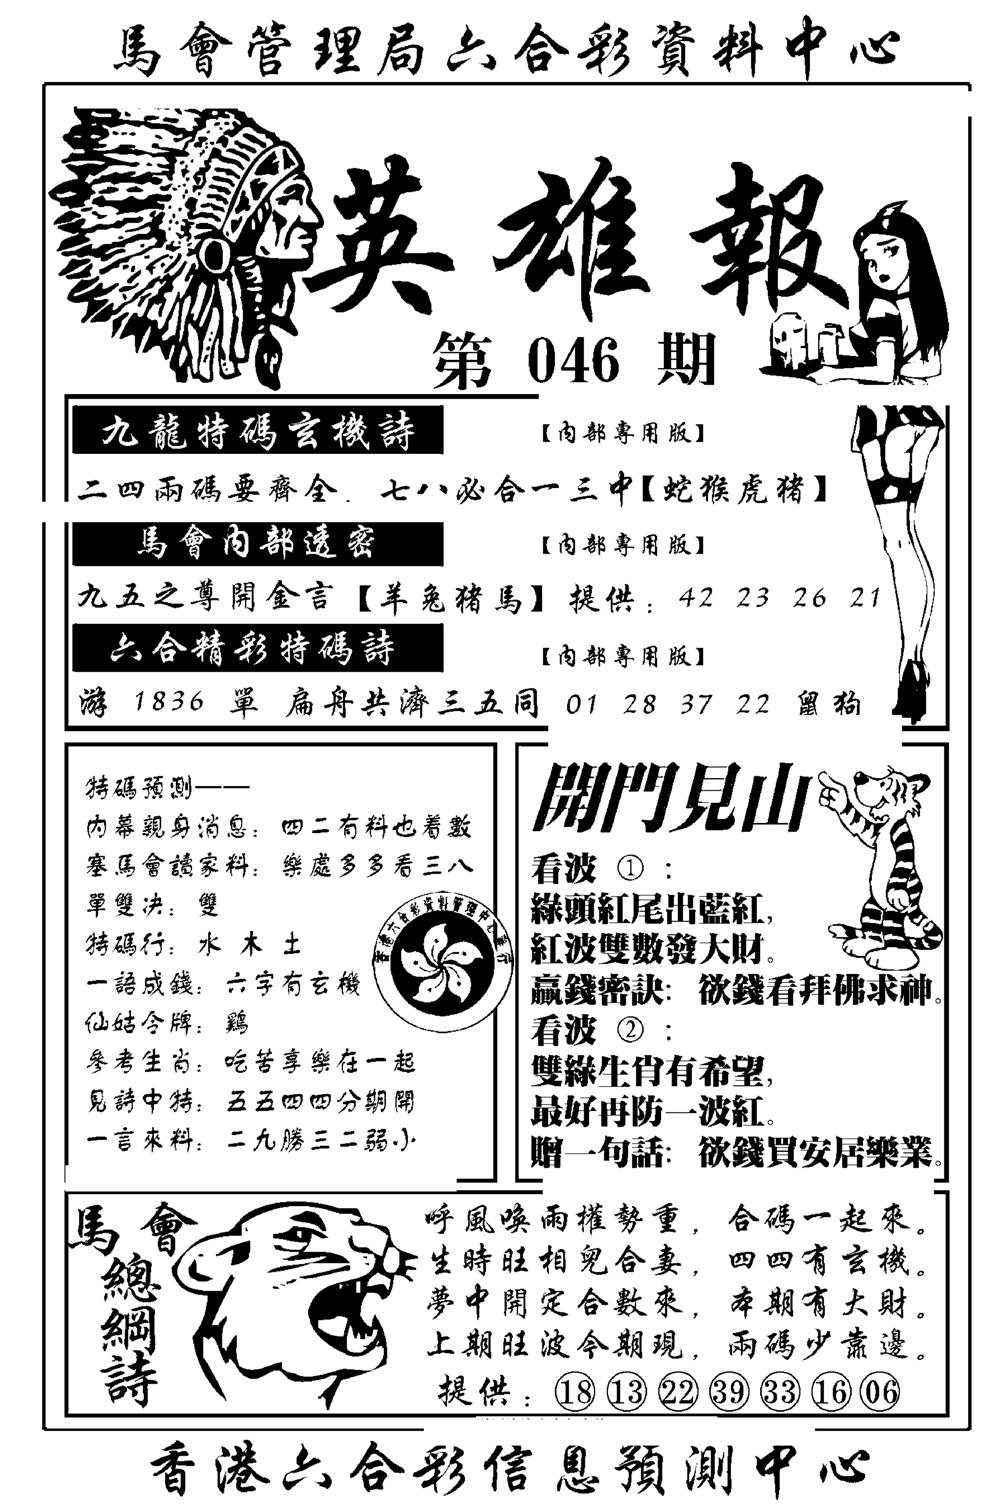 馬會管理局六合彩資料中心
英雄報
第 046 期
九龍特碼玄機詩 【内部專用版】
二四兩碼要齊全．七八必合一三中【蛇猴虎猪】
馬會内部透密 【内部專用版】
九五之尊開金言【羊兔猪馬】提供：42 23 26 21
六合精彩特碼詩 【内部專用版】
游 1836 單 扁舟共濟三五同 01 28 37 22 鼠狗
特碼預測——
内幕親身消息：四二有料也着數
塞馬會讀家料：樂處多多看三八
單雙决：雙
特碼行：水 木 土
一語成錢：六字有玄機
仙姑令牌：鷄
參考生肖：吃苦享樂在一起
見詩中特：五五四四分期開
一言來料：二九勝三二弱小
香港六會彩資料管理中心發行
開門見山
看波 ①：
綠頭紅尾出藍紅，
紅波雙數發大財。
贏錢密訣：欲錢看拜佛求神。
看波 ②：
雙綠生肖有希望，
最好再防一波紅。
贈一句話：欲錢買安居樂業。
馬會
總綱詩
呼風喚雨權勢重，合碼一起來。
生時旺相兒合妻，四四有玄機。
夢中開定合數來，本期有大財。
上期旺波今期現，兩碼少靠邊。
提供：⑱ ⑬ ㉒ ㊴ ㉝ ⑯ 06
香港六合彩信息預測中心